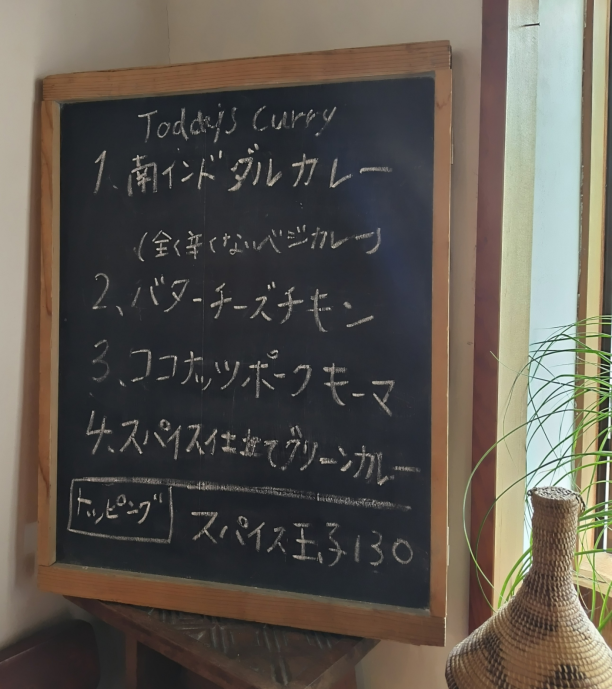 Today's Curry
1、南インド ダルカレー
(全く辛くないベジカレー)
2、バターチーズチキン
3、ココナッツポークモーマ
4、スパイス仕立てグリーンカレー
トッピング スパイス玉子130